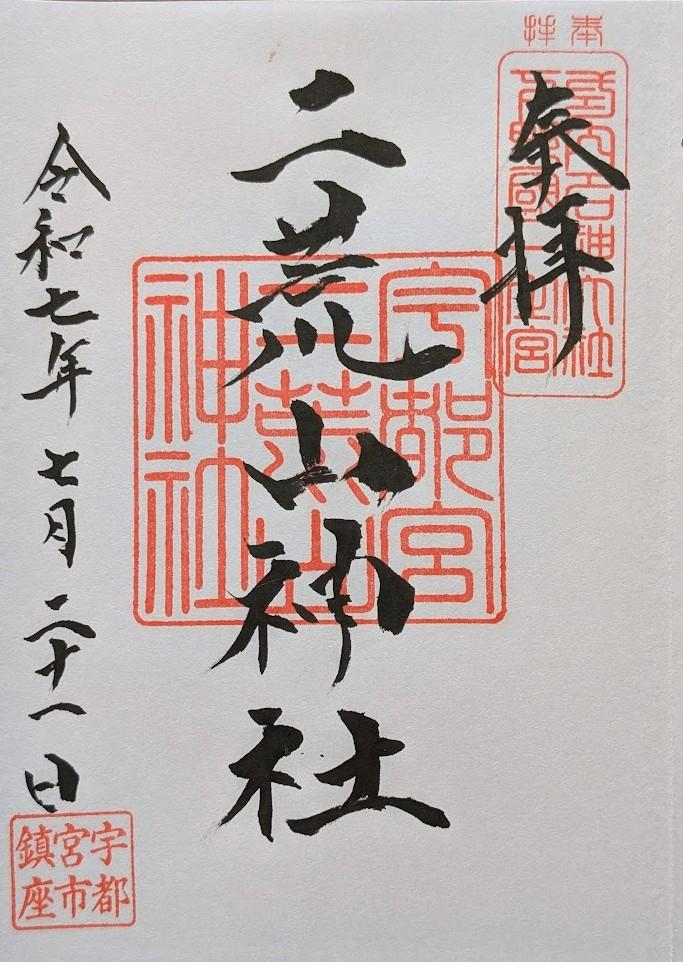 奉拝
式内名神大社
下野國一之宮
奉拝
二荒山神社
宇都宮
二荒山
神社
令和七年七月二十一日
宇都
宮市
鎮座